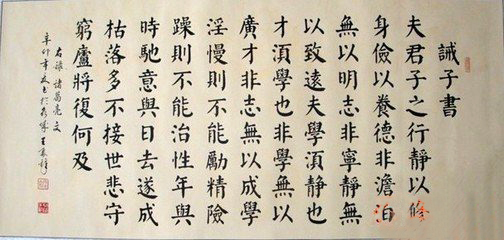 誡子書
夫君子之行靜以修
身儉以養德非澹泊
無以明志非寧靜無
以致遠夫學湏靜也
才湏學也非學無以
廣才非志無以成學
淫慢則不能勵精險
躁則不能治性年與
時馳意與日去遂成
枯落多不接世悲守
窮廬將復何及
右錄諸葛亮文
辛卯年